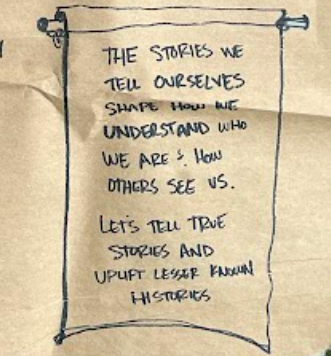 THE STORIES WE
TELL OURSELVES
SHAPE HOW WE
UNDERSTAND WHO
WE ARE & HOW
OTHERS SEE US.
LET'S TELL TRUE
STORIES AND
UPLIFT LESSER KNOWN
HISTORIES